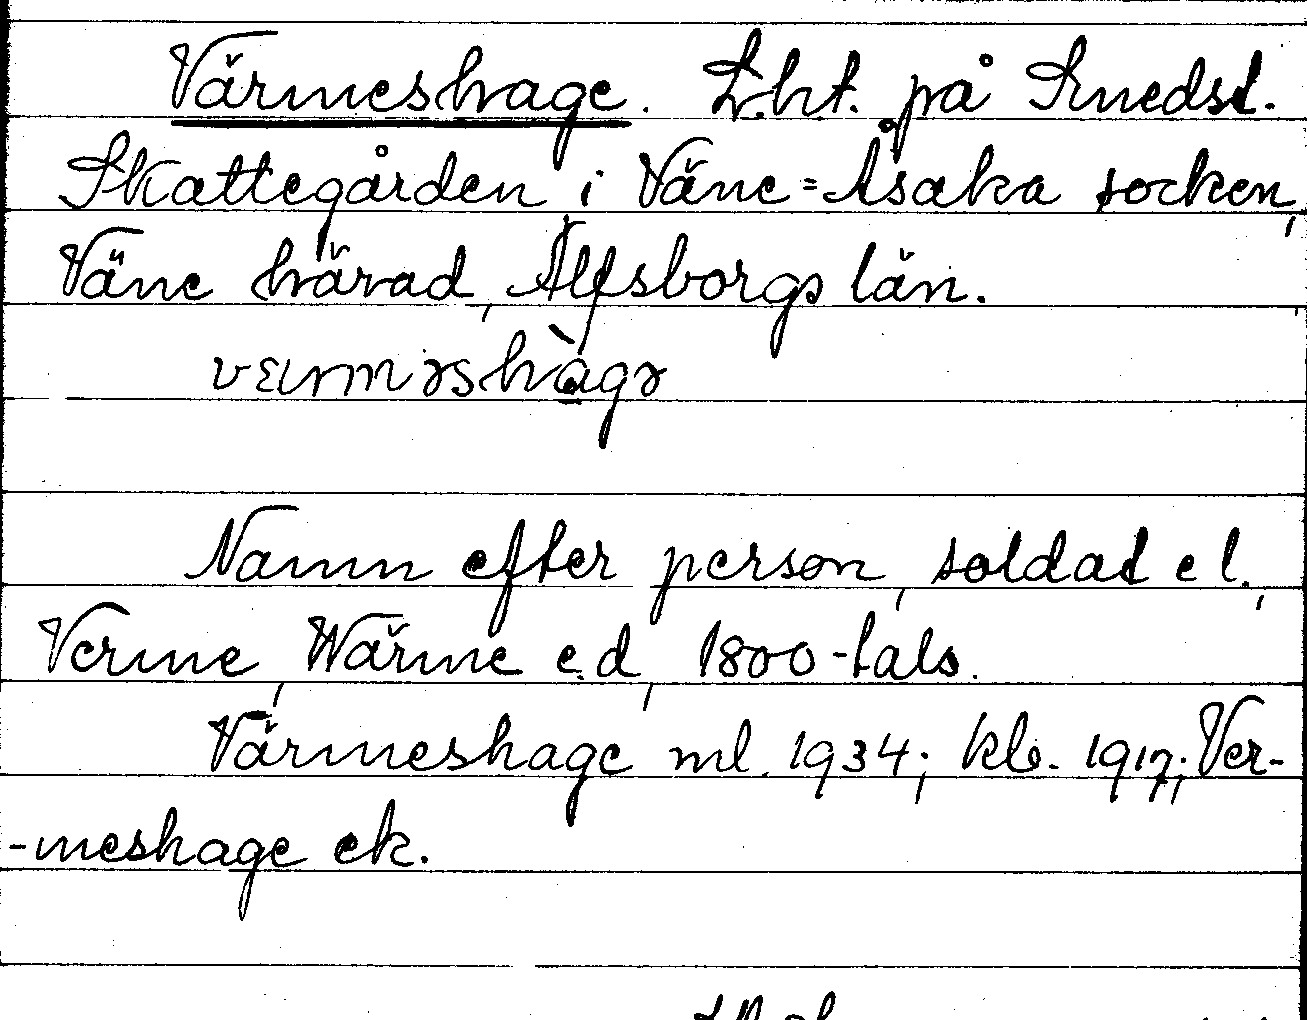 Värmeshage. Lht. på Smedst.
Skattegården i Väne-Åsaka socken,
Väne härad, Älfsborgs län.
Namn efter person, soldat el.,
Verme, Wärme e.d., 1800-tals.
Värmeshage ml. 1934; klb. 1917; Ver-
-meshage ek.